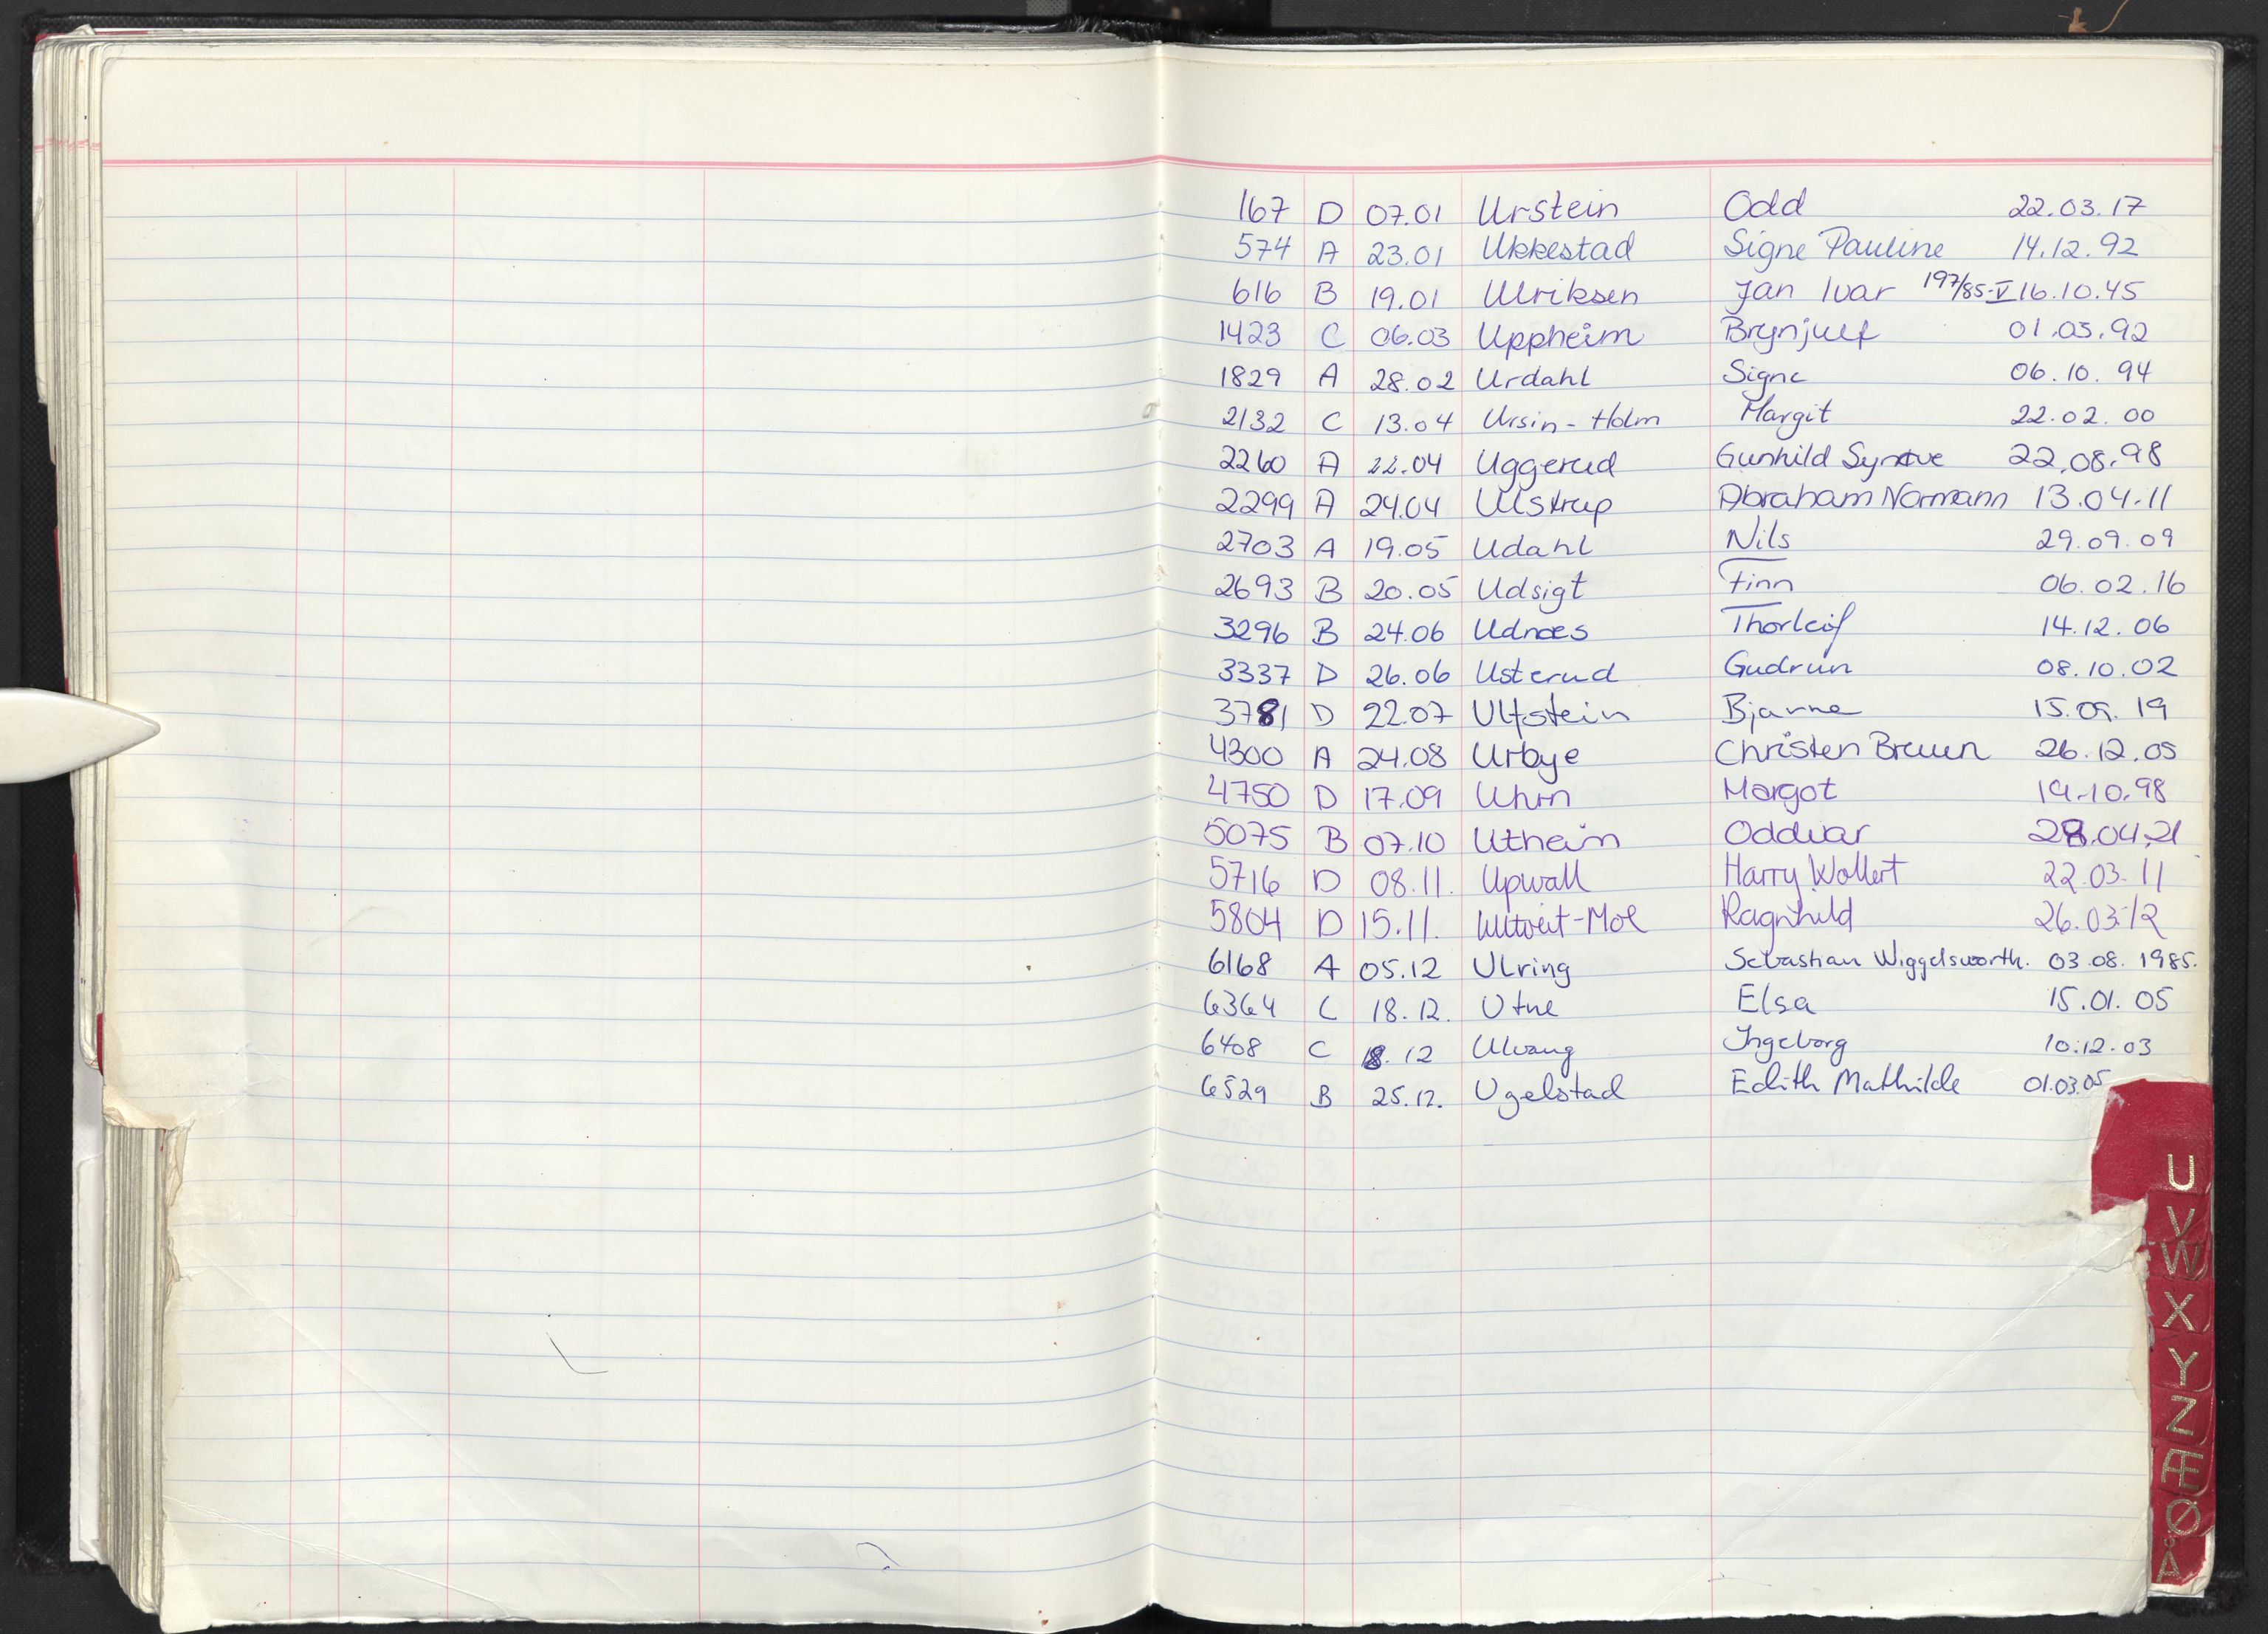 167 D 07.01 Urstein Odd 22.03.17
574 A 23.01 Ukkestad Signe Pauline 14.12.92
616 B 19.01 Ulriksen Jan Ivar 197/85-V 16.10.45
1423 C 06.03 Uppheim Brynjulf 01.05.92
1829 A 28.02 Urdahl Signe 06.10.94
2132 C 13.04 Ursin-Holm Margit 22.02.00
2260 A 22.04 Uggerud Gunhild Synøve 22.08.98
2299 A 24.04 Ulstrup Abraham Normann 13.04.11
2703 A 19.05 Udahl Nils 29.09.09
2693 B 20.05 Udsigt Finn 06.02.16
3296 B 24.06 Udnæs Thorleif 14.12.06
3337 D 26.06 Usterud Gudrun 08.10.02
3781 D 22.07 Ulfstein Bjarne 15.09.19
4300 A 24.08 Urbye Christen Bruun 26.12.05
4750 D 17.09 Uhrn Margot 19.10.98
5075 B 07.10 Utheim Oddvar 28.04.21
5716 D 08.11. Upwall Harry Wollert 22.03.11
5804 D 15.11. Ulltveit-Moe Ragnhild 26.03.12
6168 A 05.12 Ulring Sebastian Wiggelsworth. 03.08.1985.
6364 C 18.12. Utne Elsa 15.01.05
6408 C 18.12 Ulvang Ingeborg 10.12.03
6529 B 25.12. Ugelstad Edith Mathilde 01.03.05
U
V
W
X
Y
Z
Æ
Ø
Å